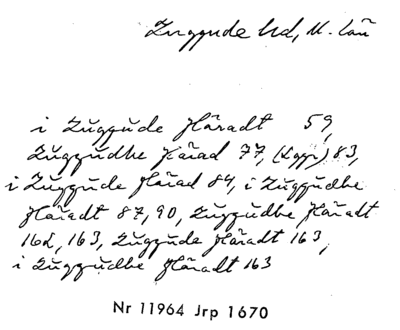 Zuggude hd, U. län
i Zŭggŭde Häradt 59,
Zŭggŭdhe Härad 77, (Lappr) 83,
i Zŭggŭde Härad 84, i Zŭggŭdhe
Häradt 87, 90, Zŭggŭdhe Häradt
162, 163, Zŭggŭde Häradt 163,
i Zŭggŭdbe Häradt 163
Nr 11964 Jrp 1670